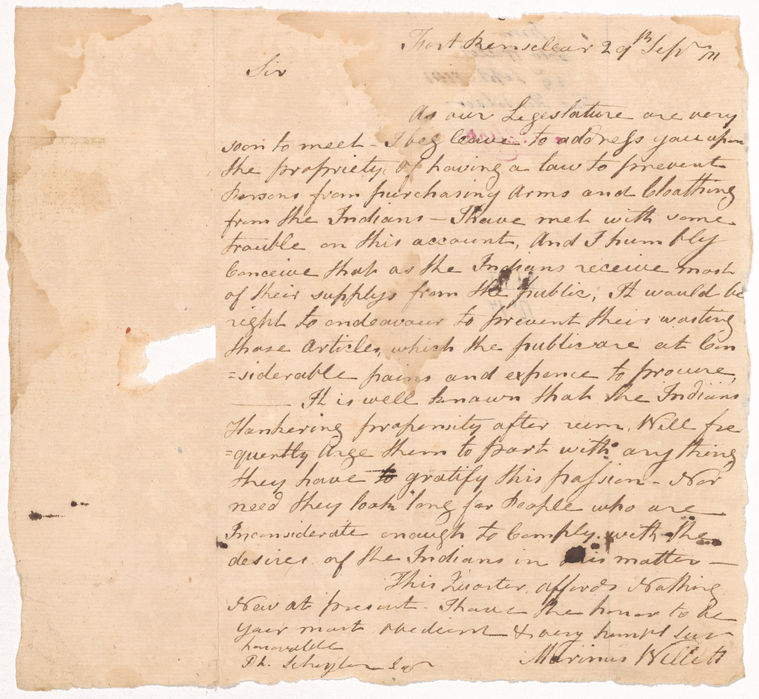 Fort Renselear 29th Sepr
Sir
As our Legislature are very
soon to meet - I beg leave to address you upon
the propriety of having a law to prevent
Persons from purchasing Arms and Cloathing
from the Indians - I have met with some
trouble on this account, And I humbly
Conceive that as the Indians receive most
of their supplys from the public, It would be
right to endeavour to prevent their wasting
those Articles, which the public are at Con
=siderable pains and expence to procure,
It is well known that the Indians
Hankering propensity after rum, Will fre
=quently Urge them to part with any thing
they have to gratify this passion - Nor
need they look long for People who are
Inconsiderate enough to Comply with the
desires of the Indians in this matter -
This Quarter affords Nothing
New at present. I have the honor to be
your most obedient & very humbl Serv
Marinus Willett
honorable
Ph. Schuyler Esqr